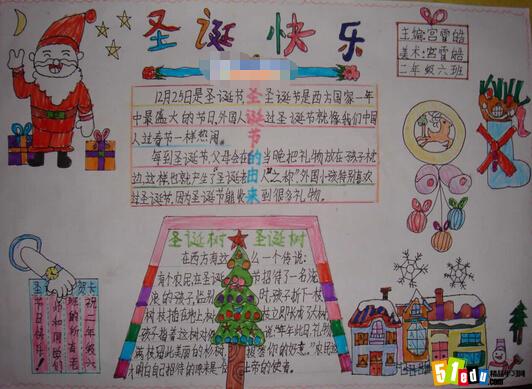 圣诞快乐
主编:宫雪皓
美术:宫雪皓
二年级六班
圣诞节的由来
12月25日是圣诞节,圣诞节是西方国家一年
中最盛大的节日,外国人过圣诞节就像我们中国
人过春节一样热闹。
每到圣诞节,父母会在当晚把礼物放在孩子枕
边,这样,也就产生了"圣诞老人"之称"外国小孩特别喜欢
过圣诞节,因为圣诞节能收到很多礼物。
圣诞树 圣诞树
在西方有这么一个传说:
有个农民在圣诞节招待了一个流
浪的孩子,临别孩子折下一枝
树枝插在地上树枝立即长成大树,
孩子指着这树对农民说:"每年此日,礼物
满枝
美丽的杉树,报答你的好意。"农民这
明白自己招待的
上帝的使者。
圣
贺卡
祝二年级六
班的所有老
师和同学们
节日快乐!
51edu
精品学习网
.com